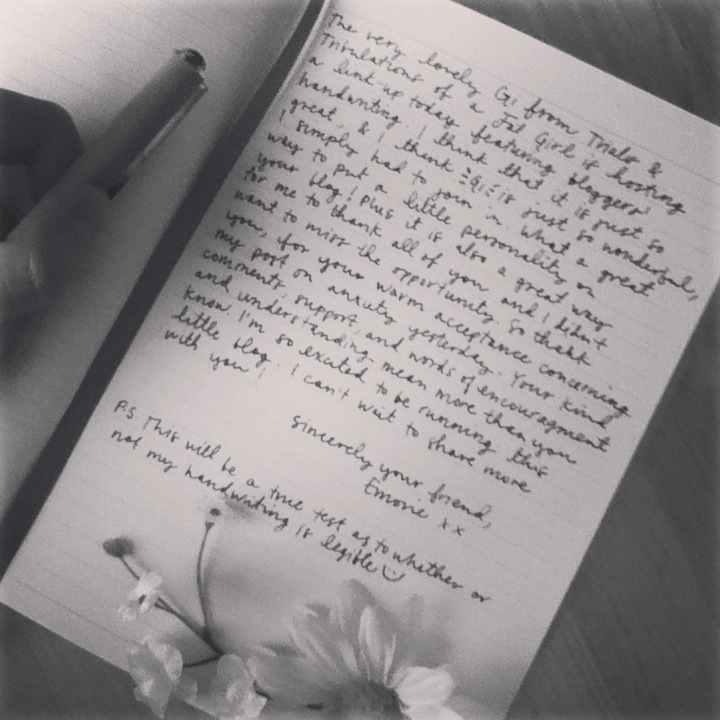 The very lovely Gi from Trials &
Tribulations of a Jet Girl is hosting
a link-up today featuring bloggers'
handwriting. I think that it is just so
great, & I think Gi is just so wonderful,
I simply had to join in. What a great
way to put a little personality on
your blog! Plus it is also a great way
for me to thank all of you and I didn't
want to miss the opportunity. So thank
you, for your warm acceptance concerning
my post on anxiety yesterday. Your kind
comments, support, and words of encouragment
and understanding mean more than you
know. I'm so excited to be running this
little blog. I can't wait to share more
with you!
Sincerely your friend,
Emorie xx
P.S. This will be a true test as to whether or
not my handwriting is legible ☺